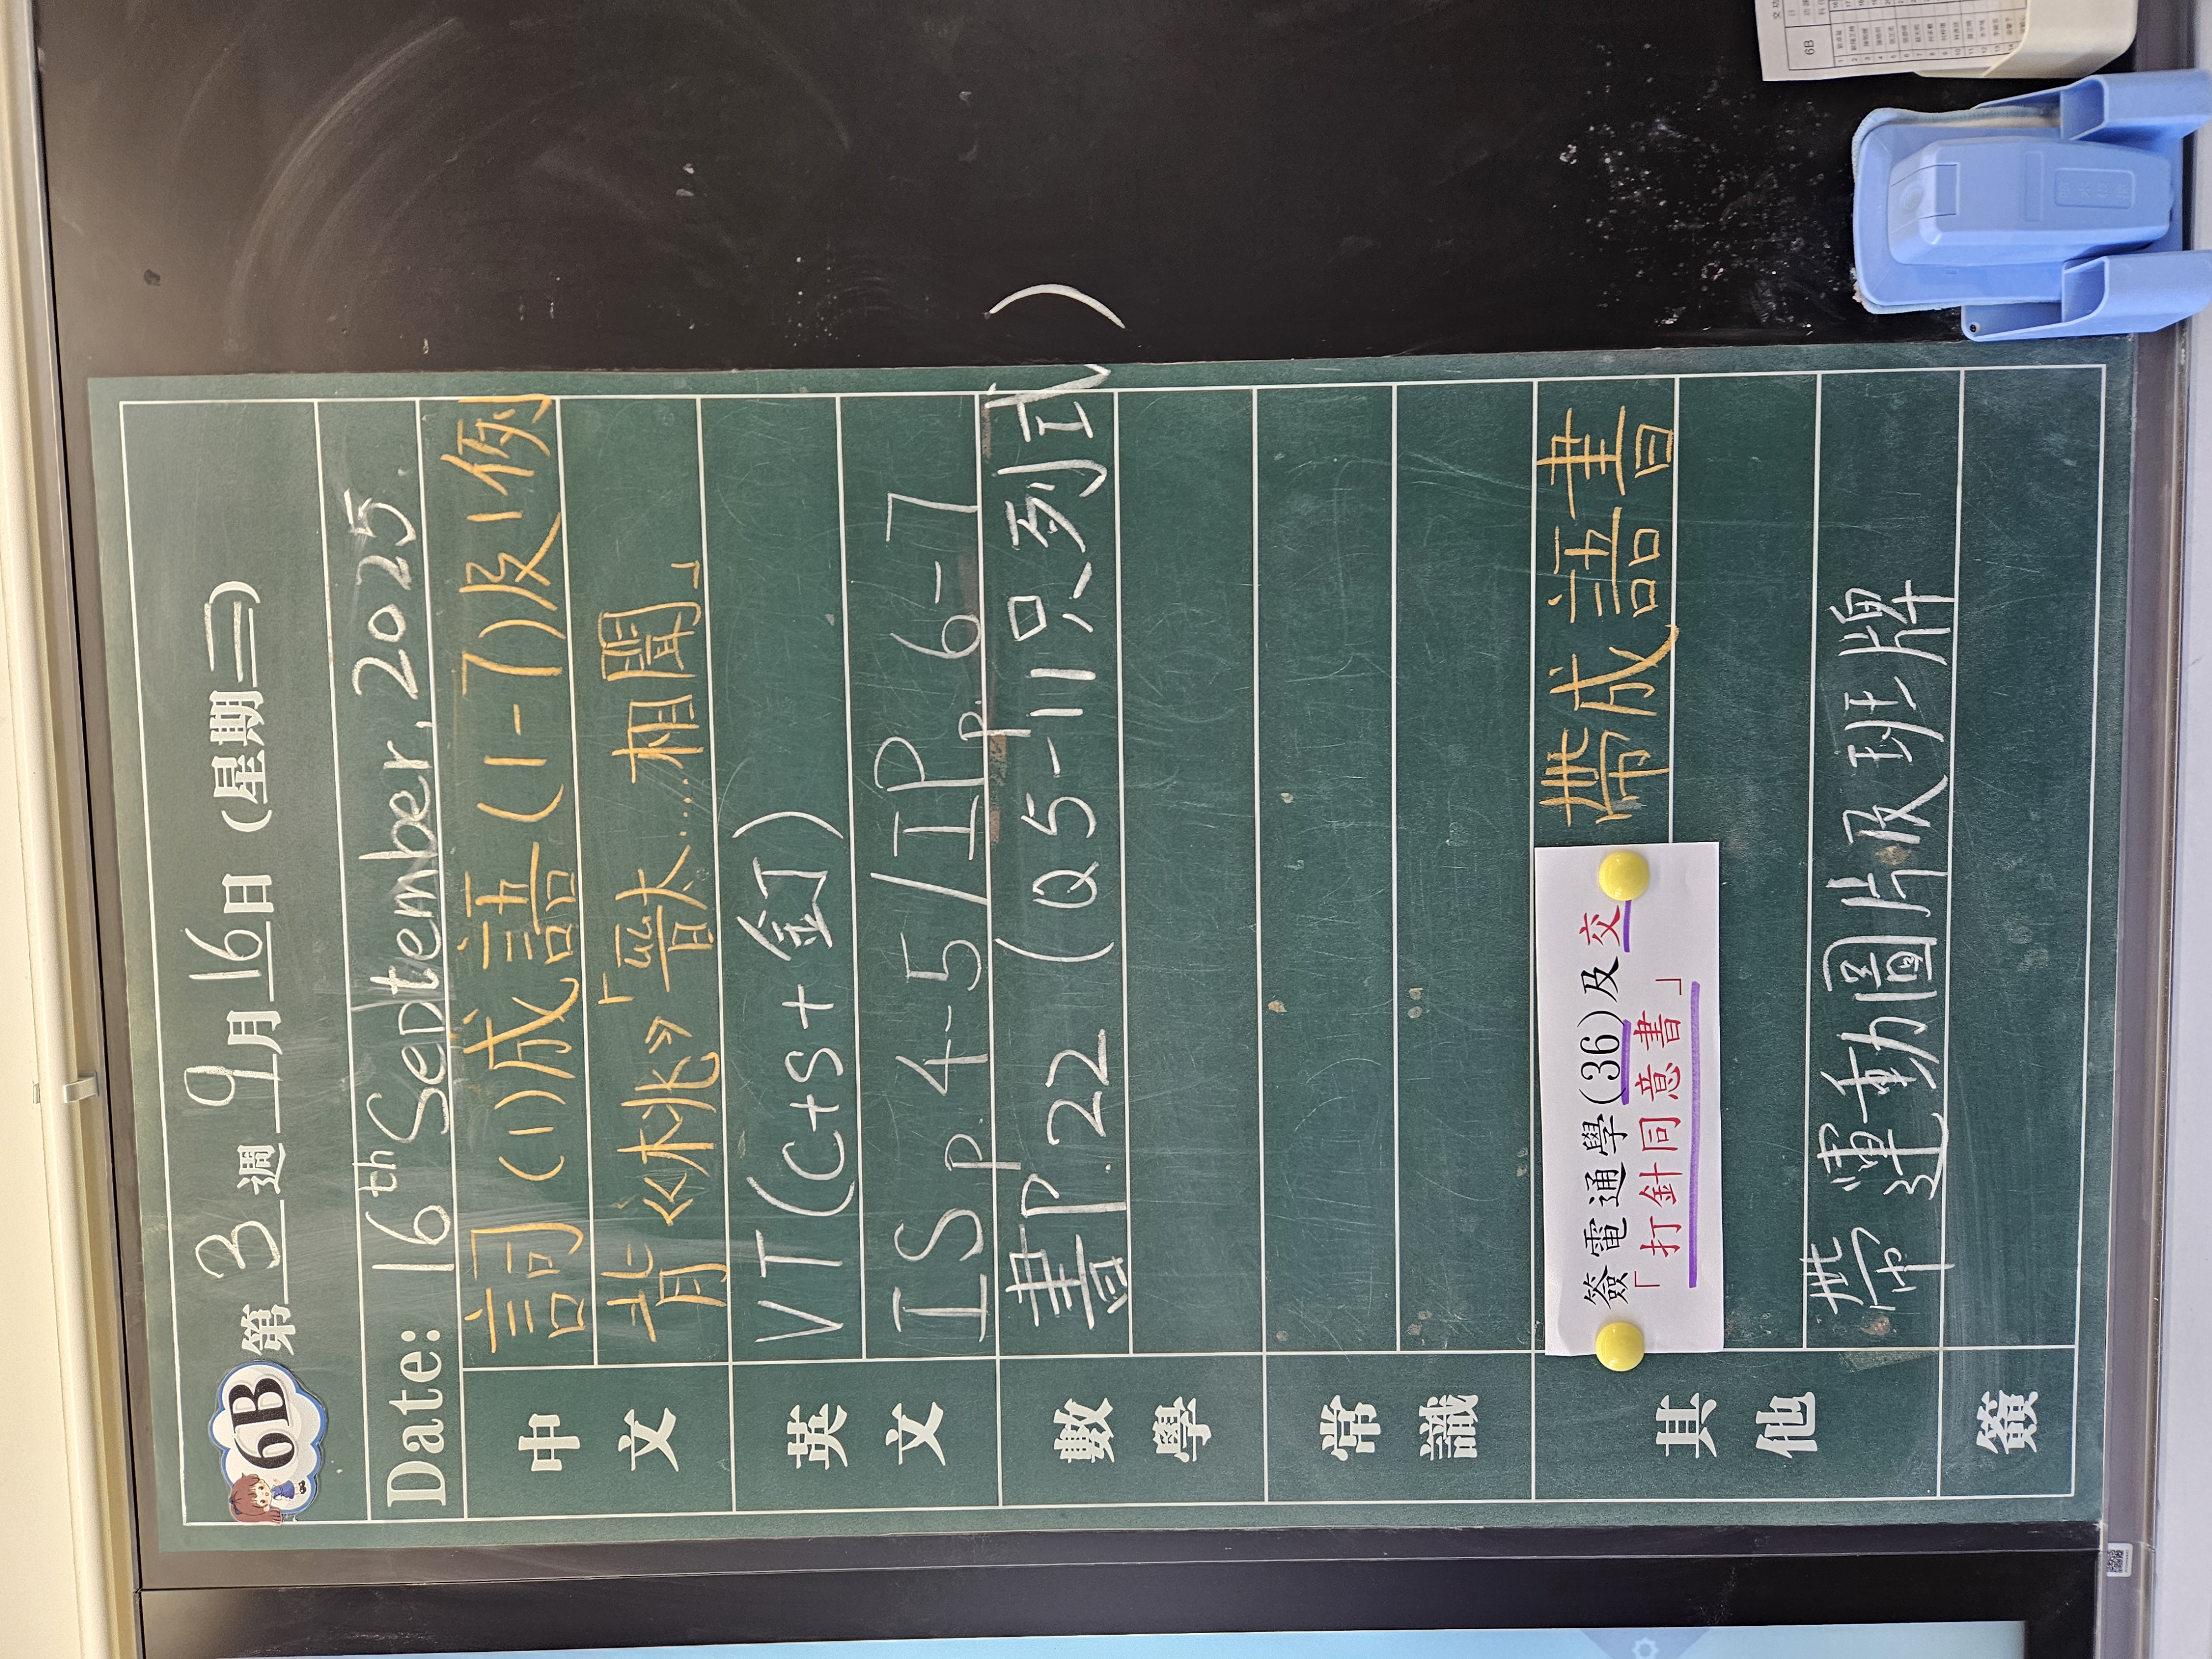 6B 第3週 9月16日 (星期二)
Date: 16th September, 2025.
中文
詞(1)成語(1-7)及1例
背《桃》「晉太....相聞」
英文
VT(C+S+釘)
IS p.4-5/IP p.6-7
數學
書P.22 (Q5-11只列式)
常識
其他
簽電通學(36)及交
「打針同意書」
帶成語書
帶運動圖片及班牌
簽
6B